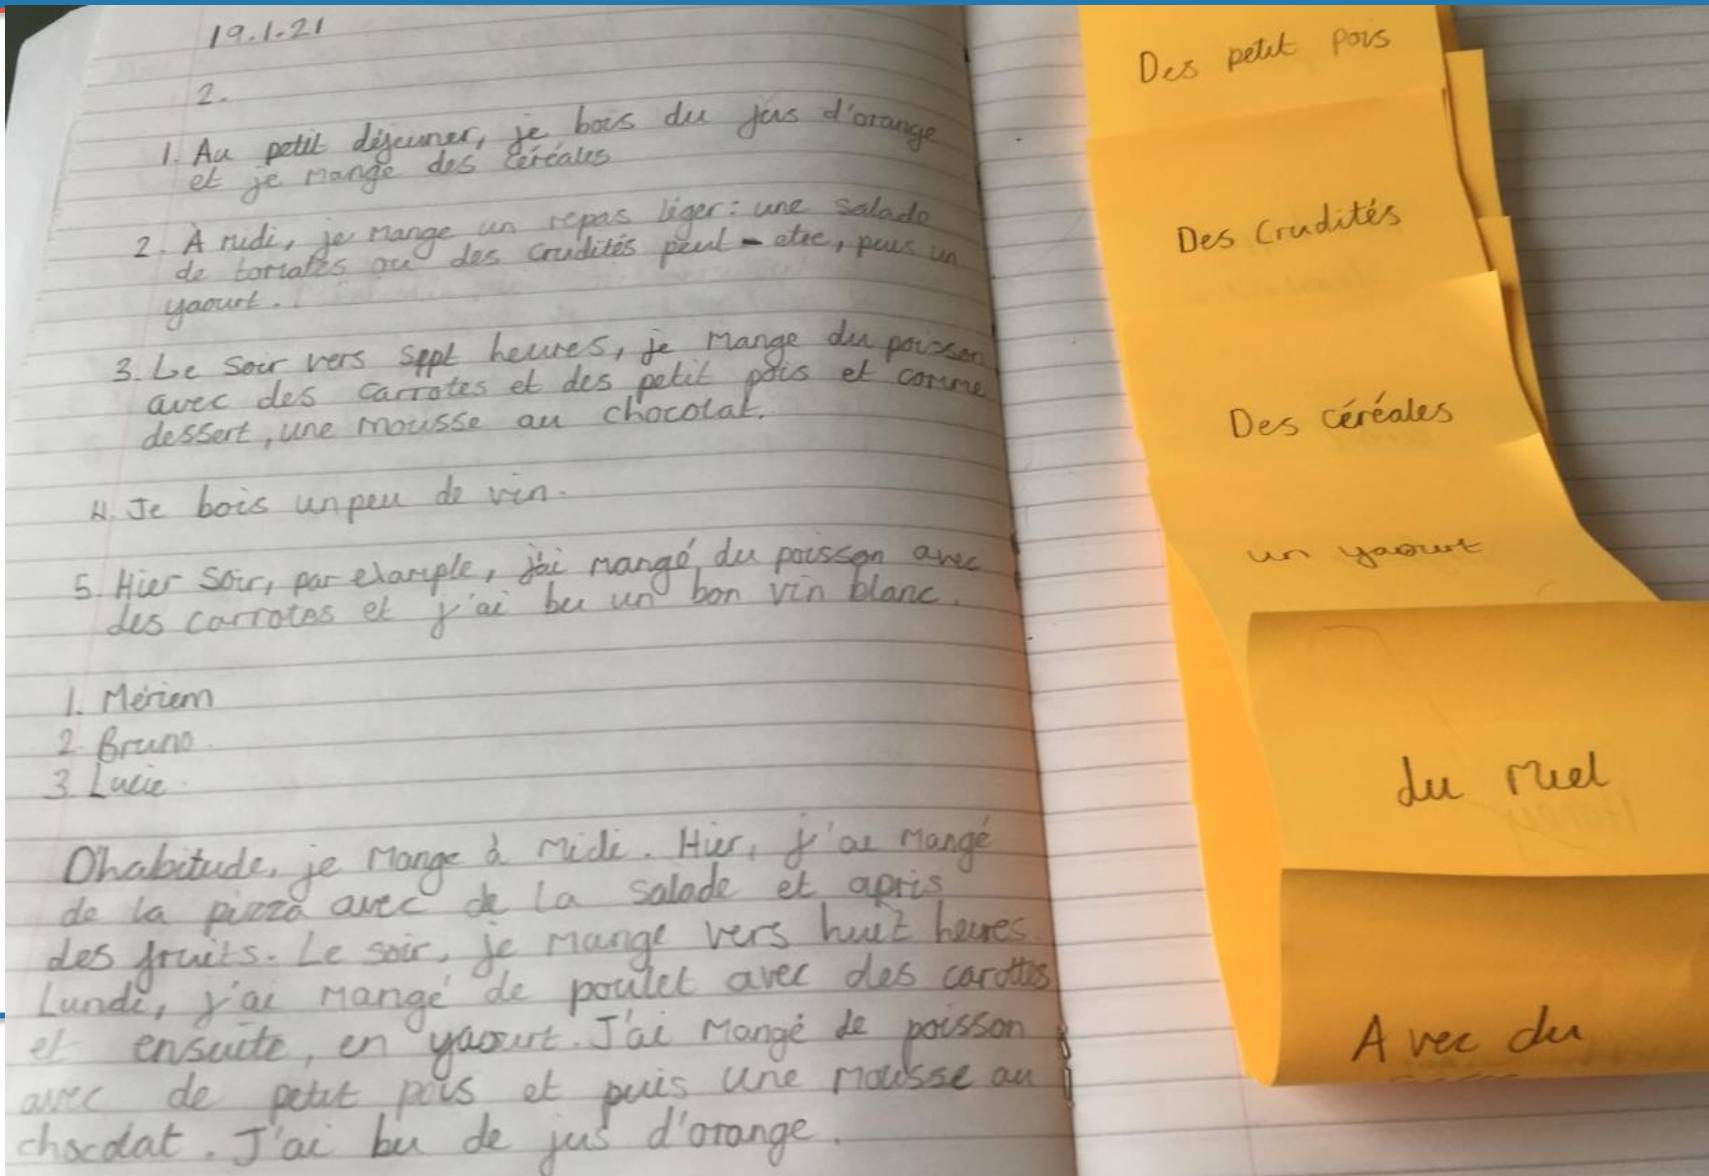 19.1.21
2.
1. Au petit déjeuner, je bois du jus d'orange
et je mange des céréales
2. À midi, je mange un repas léger: une salade
de tomates ou des crudités peut-etre, puis un
yaourt.
3. Le soir vers sept heures, je mange du poisson
avec des carrotes et des petit pois et comme
dessert, une mousse au chocolat.
4. Je bois un peu de vin.
5. Hier soir, par example, j'ai mangé du poisson avec
des carrotes et j'ai bu un bon vin blanc.
1. Mériem
2 Bruno.
3 Lucie.
D'habitude, je mange à midi. Hier, j'ai mangé
de la pizza avec de la salade et après
des fruits. Le soir, je mange vers huit heures.
Lundi, j'ai mangé de poulet avec des carottes
et ensuite, en yaourt. J'ai mangé de poisson
avec de petit pois et puis une mousse au
chocolat. J'ai bu de jus d'orange.
Des petit pois
Des Crudités
Des céréales
un yaourt
du miel
Avec du